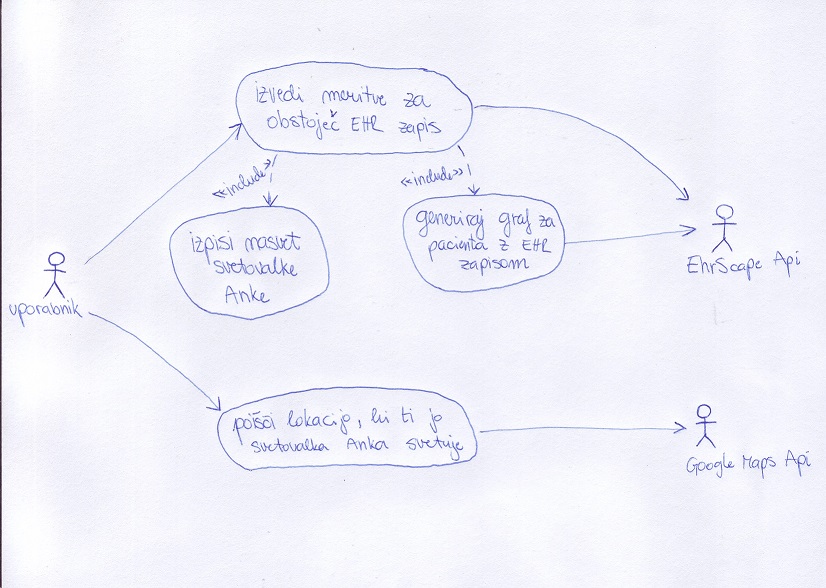 izvedi meritve za
obstoječ EHR zapis
<<include>>
<<include>>
izpisi nasvet
svetovalke
Anke
generiraj graf za
pacienta z EHR
zapisom
EhrScape Api
uporabnik
poišči lokacijo, ki ti jo
svetovalka Anka svetuje
Google Maps Api